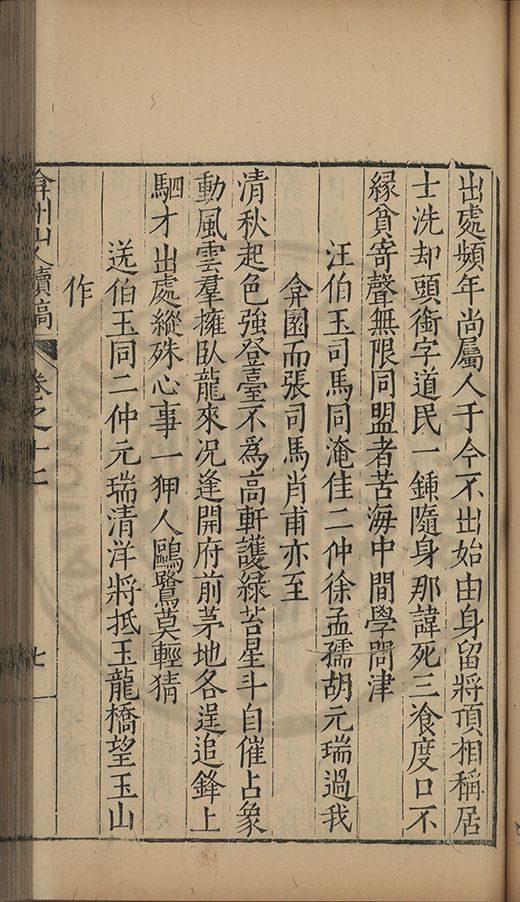 出處頻年尚屬人于今不出始由身留將頂相稱居
士洗却頭銜字道民一鍤隨身那諱死三飡度口不
緣貧寄聲無限同盟者苦海中間學問津
汪伯玉司馬同淹佳二仲徐孟孺胡元瑞過我
弇園而張司馬肖甫亦至
清秋起色強登臺不為高軒護綠苔星斗自催占象
動風雲羣擁臥龍來况逢開府前茅地各逞追鋒上
駟才出處縱殊心事一狎人鷗鷺莫輕猜
送伯玉同二仲元瑞清洋將抵玉龍橋望玉山
作
弇州山人續稿
卷之十七
七